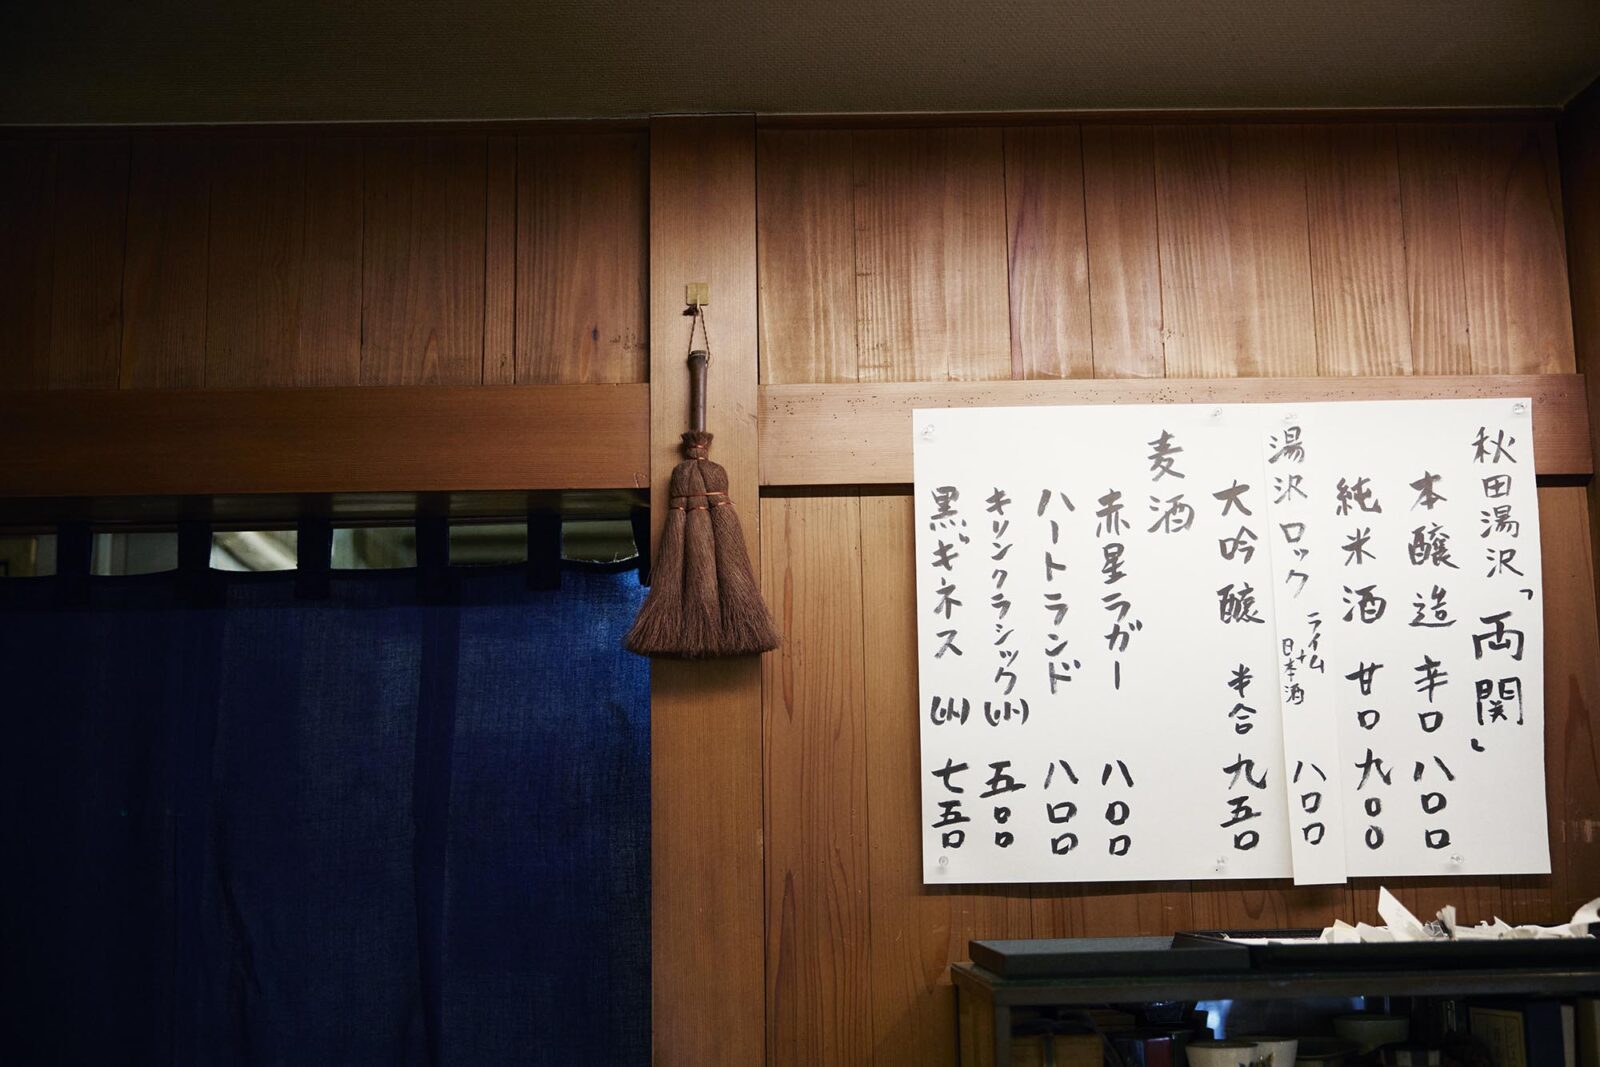 秋田湯沢「両関」
本醸造 辛口 八〇〇
純米酒 甘口 九〇〇
湯沢ロック ライム+日本酒 八〇〇
大吟醸 半合 九五〇
麦酒
赤星ラガー 八〇〇
ハートランド 八〇〇
キリンクラシック(小) 五〇〇
黒ギネス(小) 七五〇